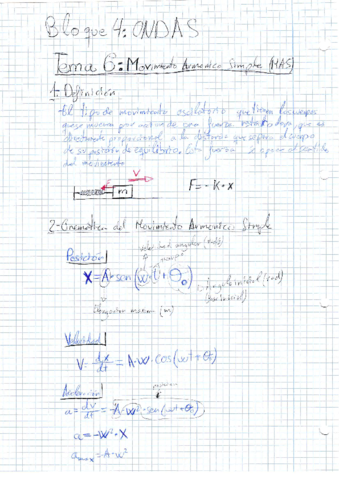 Bloque 4: ONDAS
Tema 6: Movimiento Armónico Simple (MAS)
1- Definición
El tipo de movimiento oscilatorio que tienen los cuerpos
que se mueven por acción de una fuerza restauradora que es
directamente proporcional a la distancia que separa el cuerpo
de su posición de equilibrio. Esta fuerza se opone al sentido
del movimiento
V
m
F = - K · x
2- Cinemática del Movimiento Armónico Simple
Posición
velocidad angular (rad/s)
tiempo
X = A · sen (w · t + θ₀)
ángulo inicial (rad)
Elongación máxima (m)
Velocidad
V = dx/dt = A · w · cos(wt + θt)
Aceleración
a = dv/dt = - A · w² · sen(wt + θt)
a = - w² · X
a max = A · w²